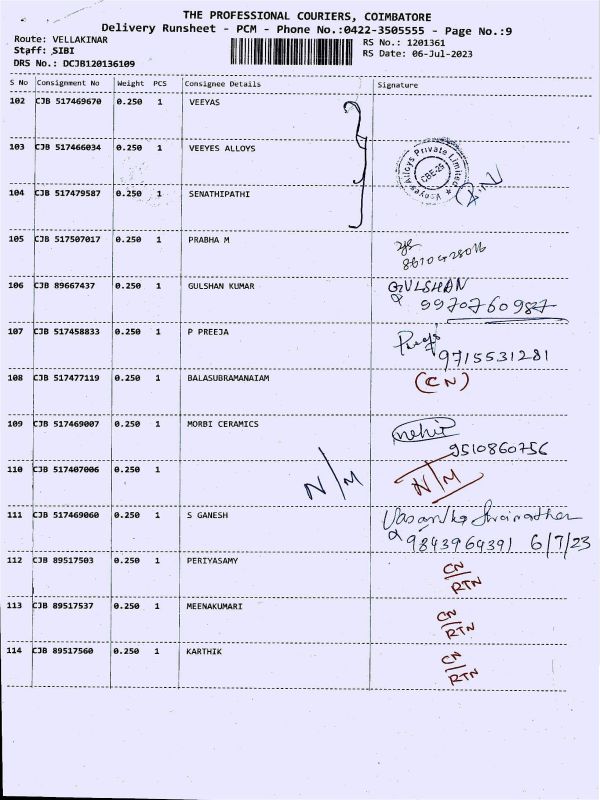 THE PROFESSIONAL COURIERS, COIMBATORE
Delivery Runsheet - PCM - Phone No.:0422-3505555 - Page No.:9
Route: VELLAKINAR
RS No.: 1201361
Staff: SIBI
RS Date: 06-Jul-2023
DRS No.: DCJB120136109
S No Consignment No Weight PCS Consignee Details Signature
102 CJB 517469670 0.250 1 VEEYAS
103 CJB 517466034 0.250 1 VEEYES ALLOYS
Veeyes Alloys Private Limited
CBE-29
104 CJB 517479587 0.250 1 SENATHIPATHI
105 CJB 517507017 0.250 1 PRABHA M
106 CJB 89667437 0.250 1 GULSHAN KUMAR GULSHAN
9970760987
107 CJB 517458833 0.250 1 P PREEJA
9715531281
108 CJB 517477119 0.250 1 BALASUBRAMANAIAM (CN)
109 CJB 517469007 0.250 1 MORBI CERAMICS
9510860756
110 CJB 517407006 0.250 1 N/M N/M
111 CJB 517469060 0.250 1 S GANESH
9843964391 6/7/23
112 CJB 89517503 0.250 1 PERIYASAMY CN/RTN
113 CJB 89517537 0.250 1 MEENAKUMARI CN/RTN
114 CJB 89517560 0.250 1 KARTHIK CN/RTN